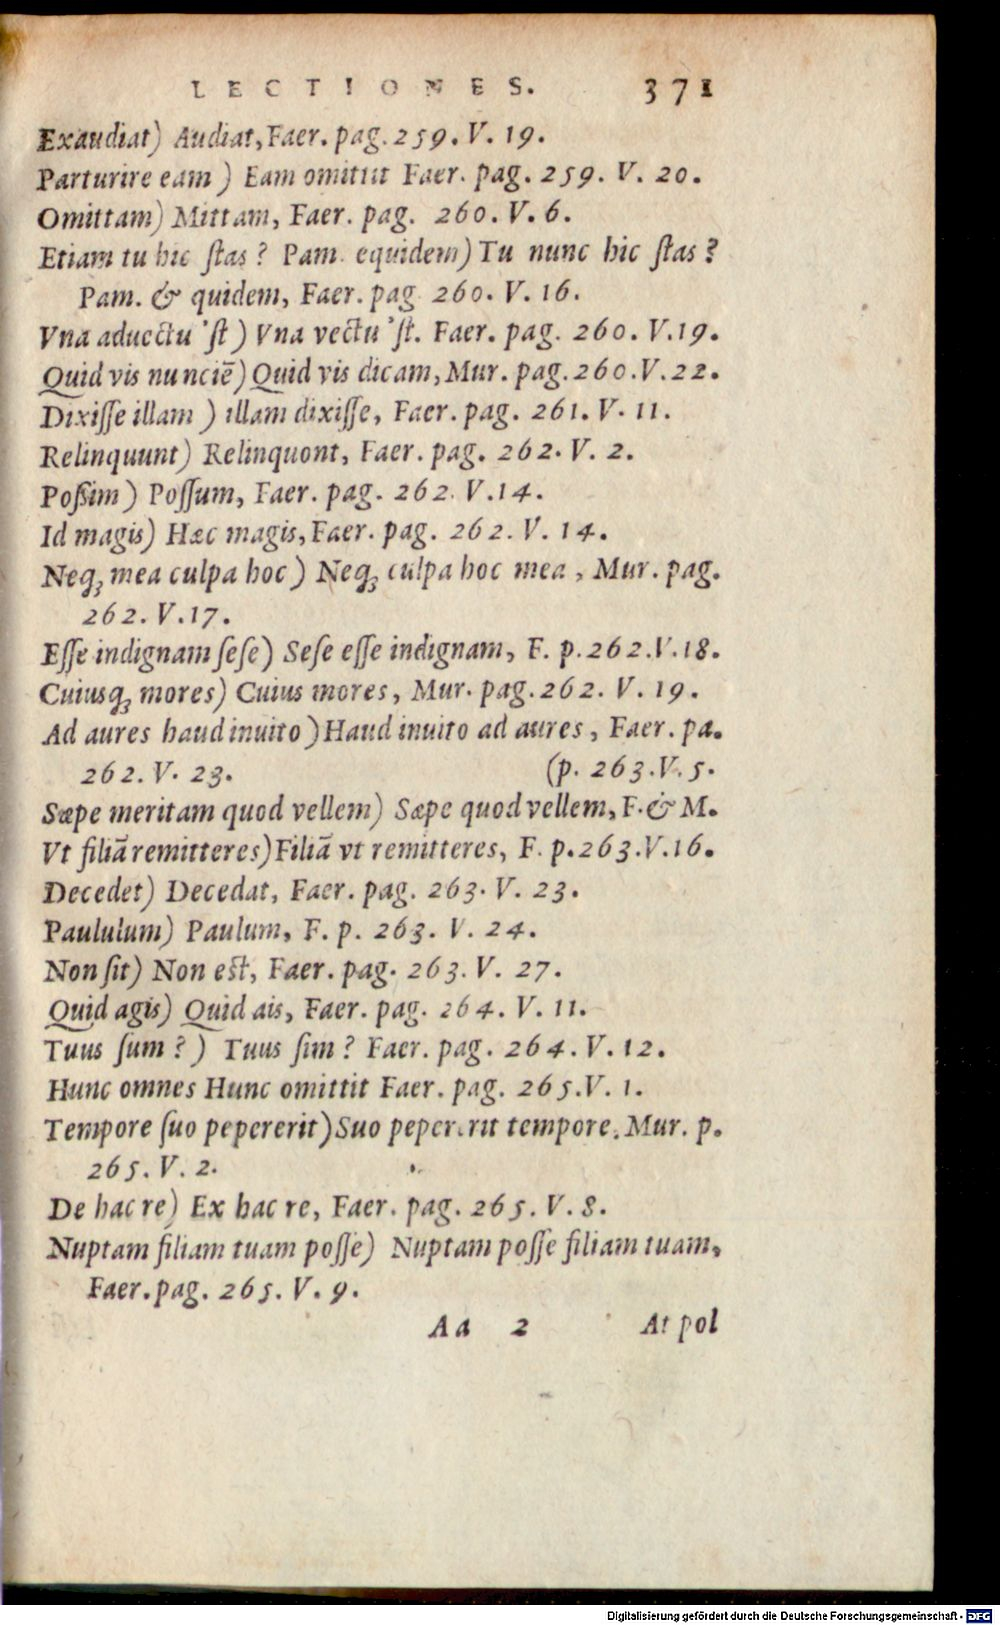 LECTIONES. 371
Exaudiat) Audiat, Faer. pag. 259. V. 19.
Parturire eam) Eam omittit Faer. pag. 259. V. 20.
Omittam) Mittam, Faer. pag. 260. V. 6.
Etiam tu hic ſtas? Pam. equidem) Tu nunc hic ſtas?
Pam. & quidem, Faer. pag 260. V. 16.
Vna aduectu 'ſt) Vna vectu 'ſt. Faer. pag. 260. V.19.
Quid vis nunciē) Quid vis dicam, Mur. pag. 260.V.22.
Dixiſſe illam) illam dixiſſe, Faer. pag. 261. V. 11.
Relinquunt) Relinquont, Faer. pag. 262. V. 2.
Poßim) Poſſum, Faer. pag. 262. V.14.
Id magis) Hæc magis, Faer. pag. 262. V. 14.
Neqꝫ mea culpa hoc) Neqꝫ culpa hoc mea, Mur. pag.
262. V.17.
Eſſe indignam ſeſe) Seſe eſſe indignam, F. p.262.V.18.
Cuiusqꝫ mores) Cuius mores, Mur. pag. 262. V. 19.
Ad aures haud inuito) Haud inuito ad aures, Faer. pa.
262. V. 23. (p. 263.V. 5.
Sæpe meritam quod vellem) Sæpe quod vellem, F. & M.
Vt filiā remitteres) Filiā vt remitteres, F. p.263.V.16.
Decedet) Decedat, Faer. pag. 263. V. 23.
Paululum) Paulum, F. p. 263. V. 24.
Non ſit) Non eſt, Faer. pag. 263. V. 27.
Quid agis) Quid ais, Faer. pag. 264. V. 11.
Tuus ſum?) Tuus ſim? Faer. pag. 264. V. 12.
Hunc omnes Hunc omittit Faer. pag. 265.V. 1.
Tempore ſuo pepererit) Suo pepererit tempore. Mur. p.
265. V. 2.
De hac re) Ex hac re, Faer. pag. 265. V. 8.
Nuptam filiam tuam poſſe) Nuptam poſſe filiam tuam,
Faer. pag. 265. V. 9.
Aa 2 At pol
Digitalisierung gefördert durch die Deutsche Forschungsgemeinschaft - DFG